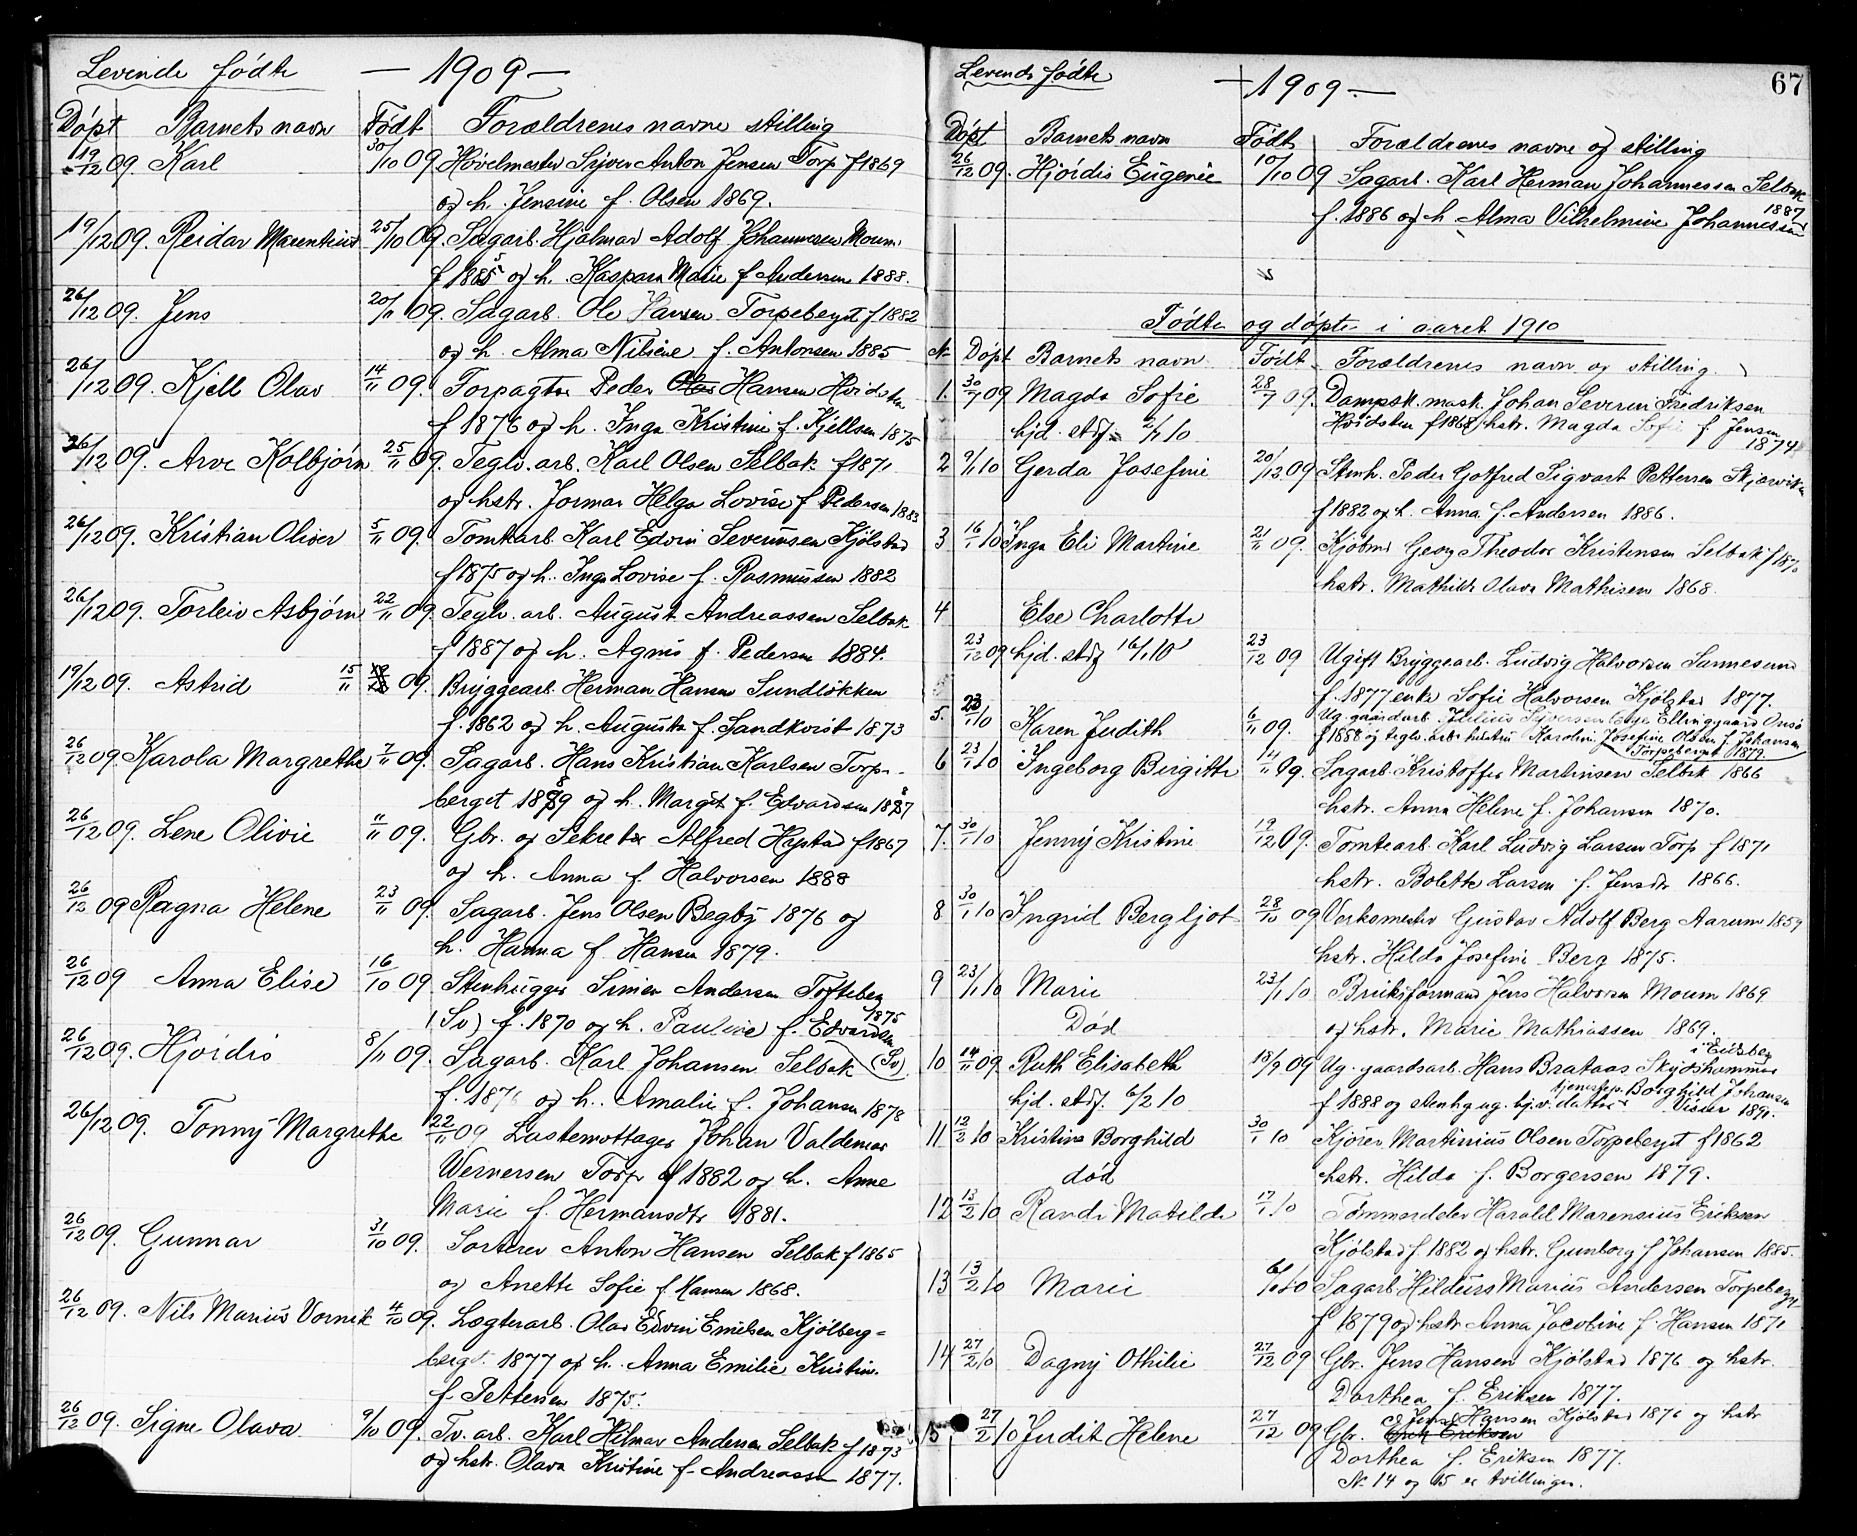 Levende fødte — 1909 —
Døpt Barnets navn Født Forældrenes navne stilling
19/12 09. Karl 30/10 09 Høvelmester Syver Anton Jensen Torp f 1869
og h. Jensine f. Olsen 1869.
19/12 09. Reidar Marentius 25/10 09. Sagarb. Hjalmar Adolf Johannesen Moum
f 1885 og h. Kaspara Marie f Andersen 1888.
26/12 09. Jens 20/11 09. Sagarb. Ole Hansen Torpeberget f 1882
og h. Alma Nilsine f. Antonsen 1885
26/12 09. Kjell Olav 14/11 09. Forpagter Peder Olav Hansen Hvidsten
f 1876 og h. Inga Kristine f. Kjellsen 1875
26/12 09. Arve Kolbjørn 25/11 09. Teglv. arb. Karl Olsen Selbak f 1871
og hstr. Jormar Helga Lovise f Pedersen 1883
26/12 09. Kristian Oliver 5/11 09. Tomtarb Karl Edvin Severinsen Kjølstad
f 1875 og h. Inga Lovise f. Rasmussen 1882
26/12 09. Torleiv Asbjørn 22/11 09. Teglv. arb. August Andreassen Selbak
f 1887 og h. Agnes f. Pedersen 1884.
19/12 09. Astrid 15/11 09. Bryggearb. Herman Hansen Sundløkken
f. 1862 og h. Augusta f. Sandkvist 1873
26/12 09 Karola Margrethe 7/11 09. Sagarb. Hans Kristian Karlsen Torpe-
berget 1889 og h. Margit f. Edvardsen 1887
26/12 09. Lene Olivie 11/11 09. Gbr. og Sekretær Alfred Hapstad f 1867
og h. Anna f. Halvorsen 1888
26/12 09 Ragna Helene 23/11 09. Sagarb. Jens Olsen Begby 1876 og
h. Hanna f. Hansen 1879.
26/12 09 Anna Elise 16/10 09. Stenhugger Simen Andersen Tofteberg
(Sv) f. 1870 og h. Pauline f. Edvardsen 1875
26/12 09. Hjørdis 8/11 09. Sagarb. Karl Johansen Selbak (Sv)
f. 1876 og h. Amalie f. Johansen 1878
26/12 09. Tonny Margrethe 22/11 09 Lastemottager Johan Valdemar
Wernersen Torp f 1882 og h. Anne
Marie f. Hermansdtr 1881.
26/12 09. Gunnar 31/10 09. Sorterer Anton Hansen Selbak f 1865
og Anette Sofie f. Hansen 1868.
26/12 09. Nils Marius Vornik 4/10 09. Lægterarb. Olav Edvin Emilsen Kjølberg=
berget. 1877 og h. Anna Emilie Kristine
f. Pettersen 1875.
26/12 09. Signe Olava 9/10 09. Tv. arb. Karl Hilmar Andersen Selbak f 1873
og hstr. Olava Kristine f. Andreassen 1877.
67
Levende fødte — 1909 —
Døpt Barnets navn Født Forældrenes navne og stilling
26/12 09. Hjørdis Eugenie 10/10 09 Sagarb. Karl Herman Johannessen Selbak
f. 1886 og h. Alma Vilhelmine Johannessen 1887
Fødte og døpte i aaret 1910
N. Døpt Barnets navn Født Forældrenes navn og stilling.
1. 30/7 09 Magda Sofie 28/7 09. Dampsk. mask. Johan Severin Fredriksen
hjd. stdf. 2/1 10 Hvidsten f 1868 hstr. Magda Sofie f Jensen 1874
2 9/1 10 Gerda Josefine 20/12 09 Stenh. Peder Gotfred Sigvart Pettersen Skjærviken
f 1882 og h. Anna f. Andersen 1886.
3 16/1 10 Inga Eli Martine 21/11 09. Kjøbmd Georg Theodor Kristensen Selbak f 1870
hstr. Mathilde Olava Mathisen 1868.
4 Else Charlotte
23/12 09 hjd. stdf 16/1 10 23/12 09 Ugift Bryggearb. Ludvig Halvorsen Sannesund
f. 1877 enke Sofie Halvorsen Kjølstad 1877.
5. 23/1 10 Karen Judith 6/11 09. Ug. gaardarb. Julius Syversen Elingaard Onsø
f 1888 og teglv. arb. hustru Karoline Josefine Olsen f. Johansen
Torpeberget 1879.
6 23/1 10 Ingeborg Birgitte 14/11 09. Sagarb. Kristoffer Martinsen Selbak 1866
hstr. Anna Helene f. Johansen 1870.
7. 30/1 10 Jenny Kristine 19/12 09. Tomtearb. Karl Ludvig Larsen Torp f 1871
hstr. Bolette Larsen f. Jensdtr 1866.
8 30/1 10 Ingrid Bergljot 28/10 09 Verksmester Gustav Adolf Berg Aarum 1859
hstr. Hilda Josefine Berg 1875.
9 23/1 10 Marie 23/1 10 Bruksformand Jens Halvorsen Moum 1869
Død og hstr. Marie Mathiassen 1869.
10 14/11 09 Ruth Elisabeth 18/9 09 Ug. gaardsarb. Hans Brataas Skydshammer i Eidsberg
hjd. stdf. 6/2 10 f 1888 og stenhg ug. hj.v. datter tjenestep. Borghild Johansen
Vister 1891.
11 12/2 10 Kristine Borghild 30/1 10 Kjører Martinius Olsen Torpeberget f 1862
død hstr. Hilda f. Borgersen 1879.
12 13/2 10 Randi Matilde 17/1 10 Tømmerdeler Harald Marensius Eriksen
Kjølstad f. 1882 og hstr. Gunborg f Johansen 1885.
13 13/2 10 Marie 6/1 10 Sagarb. Hildurs Marius Andersen Torpeberget
f 1879 og hstr Anna Jacobine f. Hansen 1871
14 27/2 10 Dagny Othilie 27/12 09 Gbr. Jens Hansen Kjølstad 1876 og hstr.
Dorthea f. Eriksen 1877.
15 27/2 10 Judit Helene 27/12 09 Gbr. Erik Eriksen Jens Hansen Kjølstad 1876 og hstr
Dorthea f. Eriksen 1877.
No 14 og 15 er tvillinger.